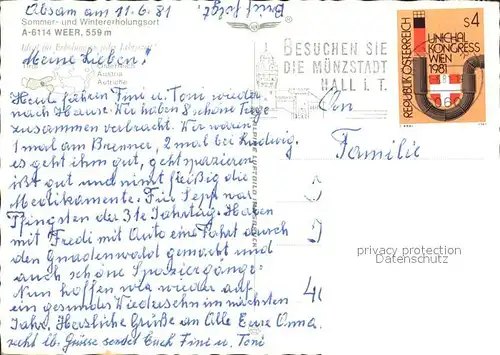 Absam am 11.6.81
Brief folgt.
Sommer- und Wintererholungsort
A-6114 WEER, 559 m
Meine Lieben!
Austria
Autriche
Heut fahren Fini u. Toni wieder
nach Hause. Wir haben 8 schöne Tage
zusammen verbracht. Wir waren
1 mal am Brenner, 2 mal bei Ludwig.
es geht ihm gut, geht spazieren
ißt gut und nimt fleißig die
Medikamente. Für Sepp war
Pfingsten der 31e Jahrtag. Haben
mit Fredi mit Auto eine Fahrt durch
den Gnadenwald gemacht und
auch schöne Spaziergänge.
Nun hoffen wir wieder auf
ein gesundes Wiedersehn im nächsten
Jahr. Herzliche Grüße an Alle Eure Oma.
recht lb. Grüsse sendet Euch Fini u. Toni
BESUCHEN SIE
DIE MÜNZSTADT
HALL i. T.
An
Familie
S4
REPUBLIK ÖSTERREICH
UNICHAL
KONGRESS
WIEN
1981
privacy protection
Datenschutz